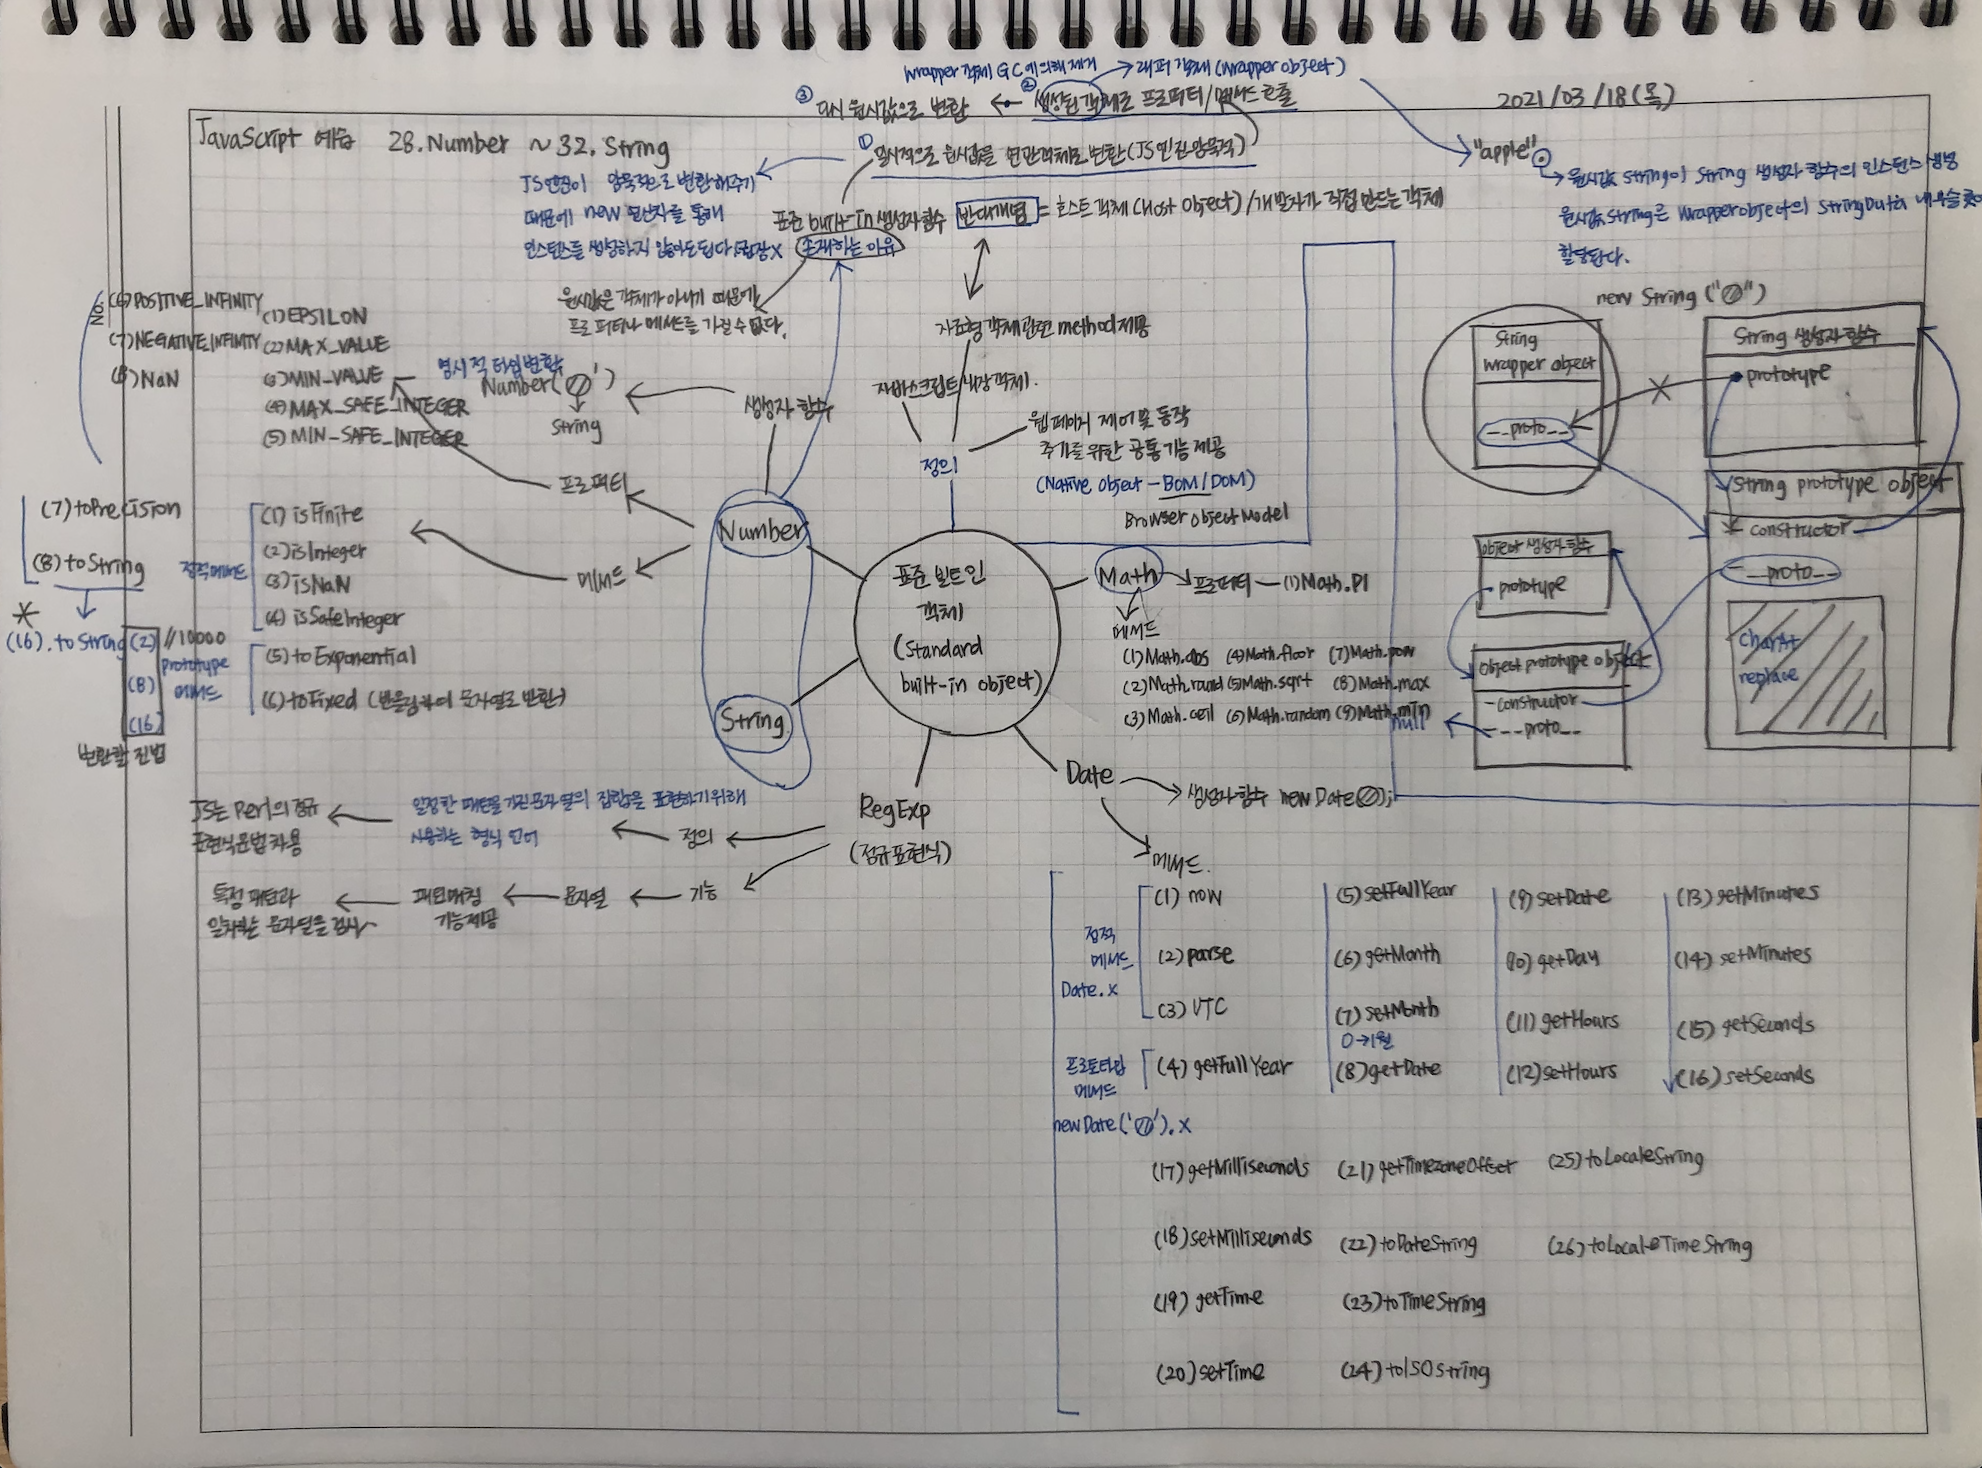 2021/03/18(목)
JavaScript 예습 28.Number ~ 32. String
wrapper 객체 GC에 의해 제거
래퍼 객체(wrapper object)
③ 다시 원시값으로 변환
② 생성된 객체로 프로퍼티/메서드 호출
① 일시적으로 원시값을 연관객체로 변환(JS엔진 암묵적)
JS엔진이 암묵적으로 변환해주기
때문에 new 연산자를 통해
인스턴스를 생성하지 않아도된다 권장x
표준 built-in 생성자 함수
존재하는 이유
반대개념 = 호스트 객체 (Host object) / 개발자가 직접 만드는 객체
원시값은 객체가 아니기 때문에
프로퍼티나 메서드를 가질 수 없다.
"apple".
원시값 string이 String 생성자 함수의 인스턴스 생성
원시값 string은 Wrapper object의 StringData 내부슬롯에
할당된다.
new String("")
String
wrapper object
__proto__
String 생성자 함수
prototype
String prototype object
constructor
__proto__
charAt
replace
object 생성자 함수
prototype
object prototype object
constructor
__proto__
null
표준 빌트인
객체
(standard
built-in object)
정의
자바스크립트 내장 객체.
자료형 객체 관련 method 제공
웹페이지 제어 및 동작
추가를 위한 공통 기능 제공
(Native object - BOM/DOM)
Browser object Model
Number
생성자 함수
명시적 타입변환
Number('')
String
프로퍼티
(1) EPSILON
(2) MAX_VALUE
(3) MIN_VALUE
(4) MAX_SAFE_INTEGER
(5) MIN_SAFE_INTEGER
No.
(6) POSITIVE_INFINITY
(7) NEGATIVE_INFINITY
(8) NaN
메서드
정적메서드
(1) isFinite
(2) isInteger
(3) isNaN
(4) isSafeInteger
prototype
메서드
(5) toExponential
(6) toFixed (반올림하여 문자열로 반환)
(7) toPrecision
(8) toString
*
(16).toString(2) //10000
(8)
(16)
변환할 진법
String
Math
프로퍼티 — (1) Math.PI
메서드
(1) Math.abs (4) Math.floor (7) Math.pow
(2) Math.round (5) Math.sqrt (8) Math.max
(3) Math.ceil (6) Math.random (9) Math.min
RegExp
(정규표현식)
정의
일정한 패턴을 가진 문자열의 집합을 표현하기위해
사용하는 형식 언어
JS는 Perl의 정규
표현식 문법 차용
기능
문자열
패턴매칭
기능제공
특정 패턴과
일치하는 문자열을 검사
Date
생성자 함수 new Date();
메서드.
정적
메서드
Date.x
(1) now
(2) parse
(3) UTC
프로토타입
메서드
new Date('').x
(4) getFullYear
(5) setFullYear
(6) getMonth
(7) setMonth
0→1월
(8) getDate
(9) setDate
(10) getDay
(11) getHours
(12) setHours
(13) getMinutes
(14) setMinutes
(15) getSeconds
(16) setSeconds
(17) getMilliseconds
(18) setMilliseconds
(19) getTime
(20) setTime
(21) getTimezoneOffset
(22) toDateString
(23) toTimeString
(24) toISOString
(25) toLocaleString
(26) toLocaleTimeString